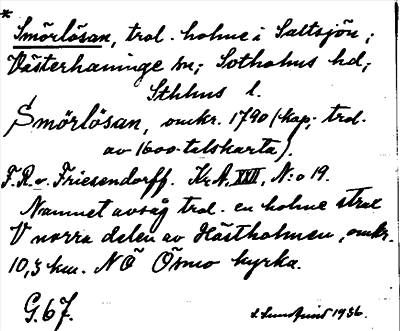 * Smörlösan, trol. holme i Saltsjön;
Västerhaninge sn; Sotholms hd;
Sthlms l.
Smörlösan, omkr. 1790 (kop. trol.
av 1600-talskarta).
F. R. v. Friesendorff. Kr A. XXII, N:o 19.
Namnet avsåg trol. en holme strax
V norra delen av Hästholmen, omkr.
10,3 km. NÖ Ösmo kyrka.
G. 67.
S. Lundquist 1936.